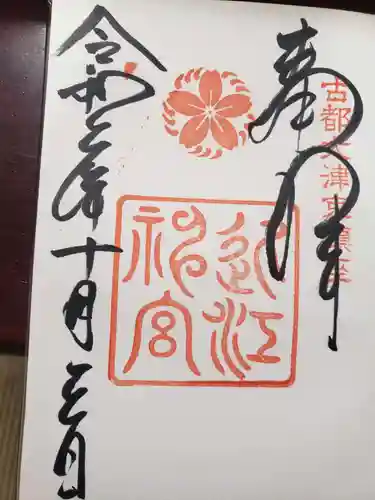 奉拝
古都大津京鎮座
近江神宮
令和六年十月三日